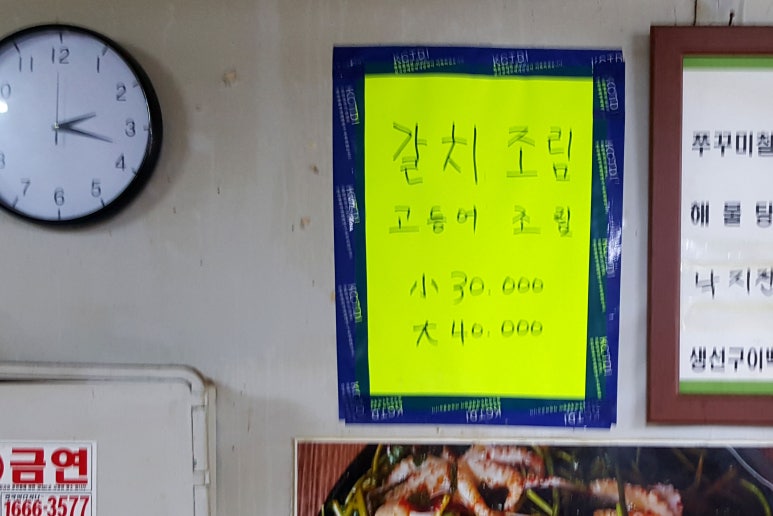 갈치 조림
고등어 조림
小 30.000
大 40.000
쭈꾸미철
해물탕
낙지전
생선구이백
금연
1666-3577
12
1
2
3
4
5
6
7
11